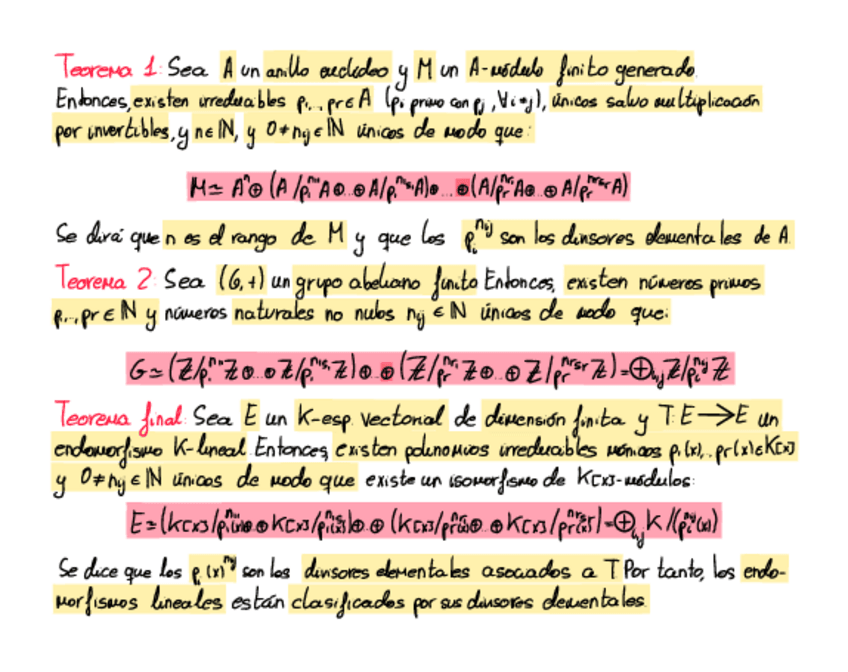 Teorema 1: Sea A un anillo euclideo y M un A-módulo finito generado.
Entonces, existen irreducibles p₁,..,pr ∈ A (pi primo con pj, ∀i≠j), únicos salvo multiplicación
por invertibles, y n ∈ ℕ, y 0≠nij ∈ ℕ únicos de modo que:
M ≃ Aⁿ ⊕ (A/p₁^n₁₁A ⊕...⊕ A/p₁^n₁s₁A) ⊕...⊕ (A/pr^nr₁A ⊕...⊕ A/pr^nrsrA)
Se dirá que n es el rango de M y que los pi^nij son los divisores elementales de A.
Teorema 2: Sea (G,+) un grupo abeliano finito Entonces, existen números primos
p₁,..,pr ∈ ℕ y números naturales no nulos nij ∈ ℕ únicos de modo que:
G ≃ (ℤ/p₁^n₁₁ℤ ⊕...⊕ ℤ/p₁^n₁s₁ℤ) ⊕..⊕ (ℤ/pr^nr₁ℤ ⊕..⊕ ℤ/pr^nrsrℤ) = ⊕i,j ℤ/pi^nijℤ
Teorema final: Sea E un K-esp. vectorial de dimensión finita y T: E → E un
endomorfismo K-lineal. Entonces, existen polinomios irreducibles mónicos p₁(x),..,pr(x) ∈ K[x]
y 0≠nij ∈ ℕ únicos de modo que existe un isomorfismo de K[x]-módulos:
E ≃ (K[x]/p₁(x)^n₁₁ ⊕..⊕ K[x]/p₁(x)^n₁s₁) ⊕..⊕ (K[x]/pr(x)^nr₁ ⊕..⊕ K[x]/pr(x)^nrsr) = ⊕i,j K/(pi^nij(x))
Se dice que los pi(x)^nij son los divisores elementales asociados a T Por tanto, los endo-
morfismos lineales están clasificados por sus divisores elementales.